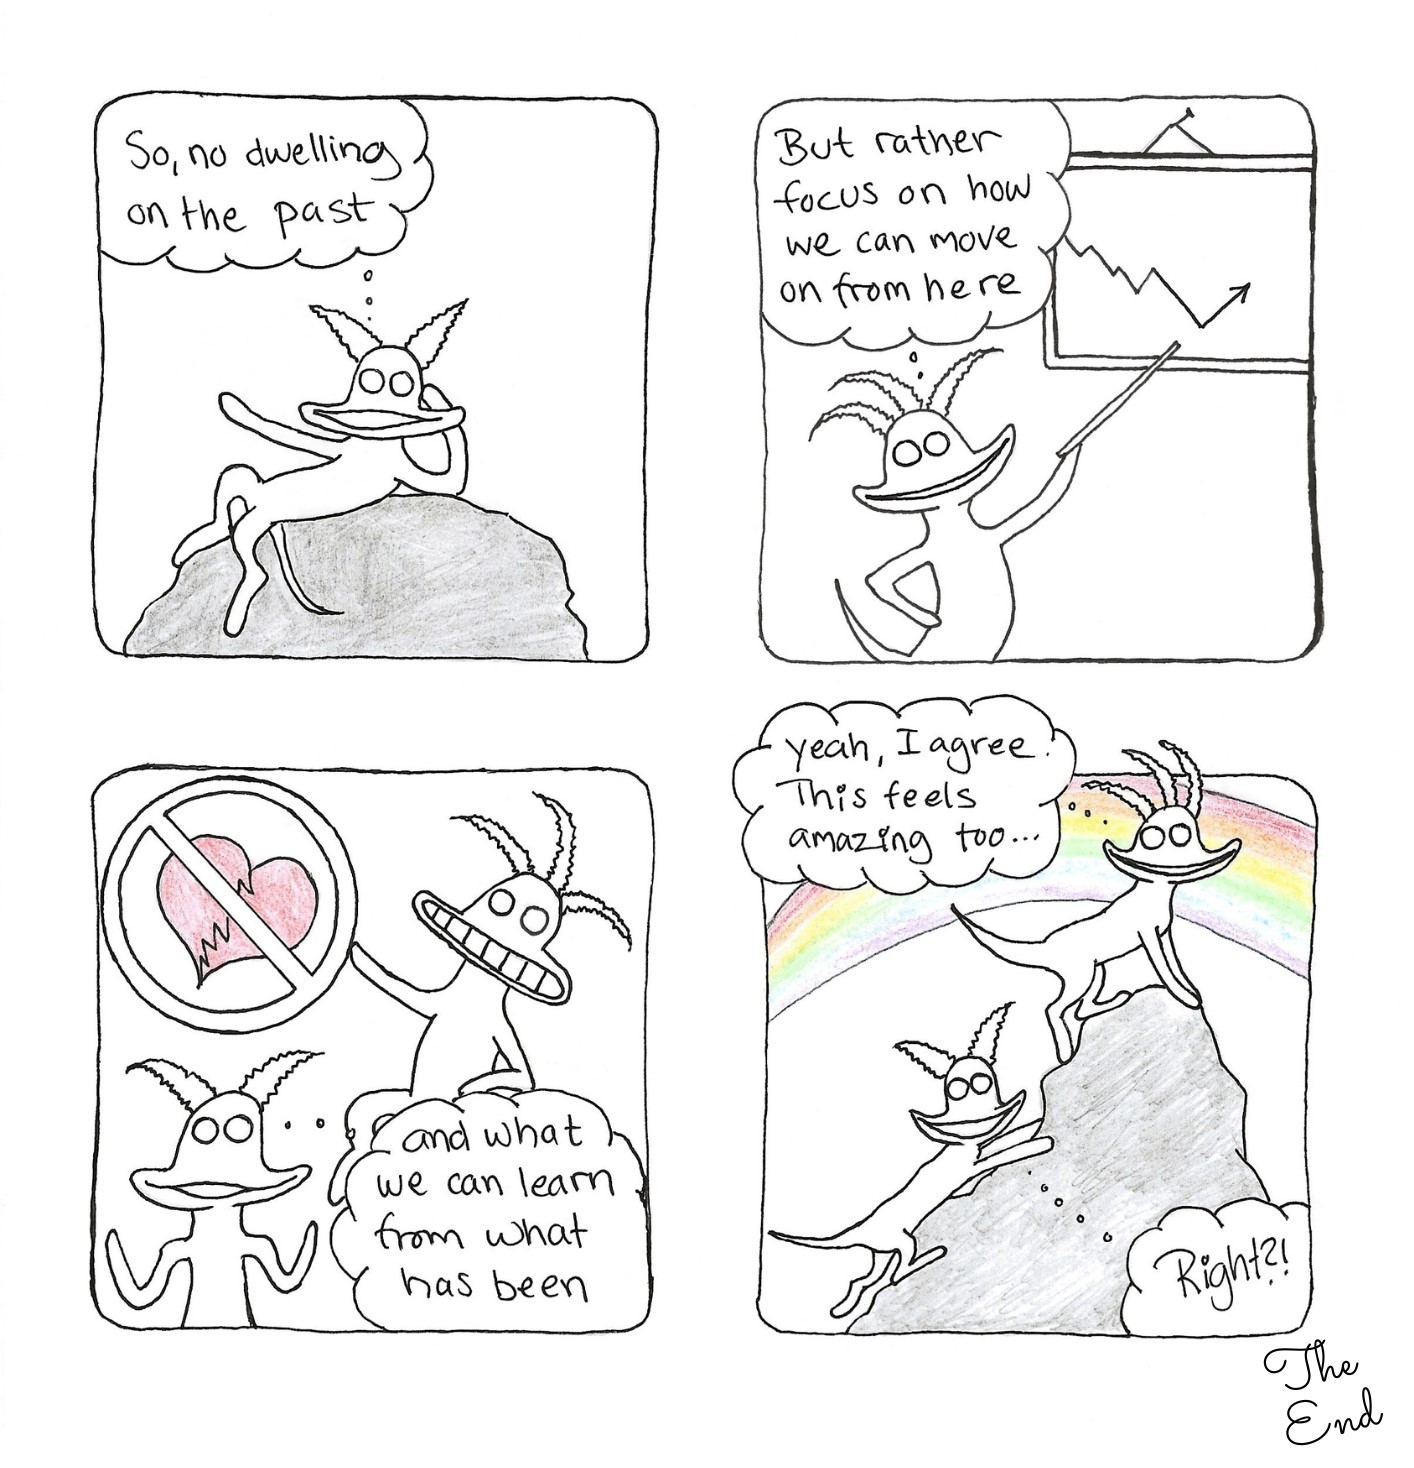 So, no dwelling
on the past
But rather
focus on how
we can move
on from here
and what
we can learn
from what
has been
yeah, I agree.
This feels
amazing too...
Right?!
The
End